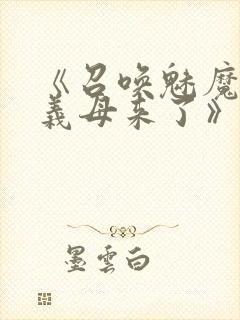 《召唤魅魔
義母来了》
墨雲白